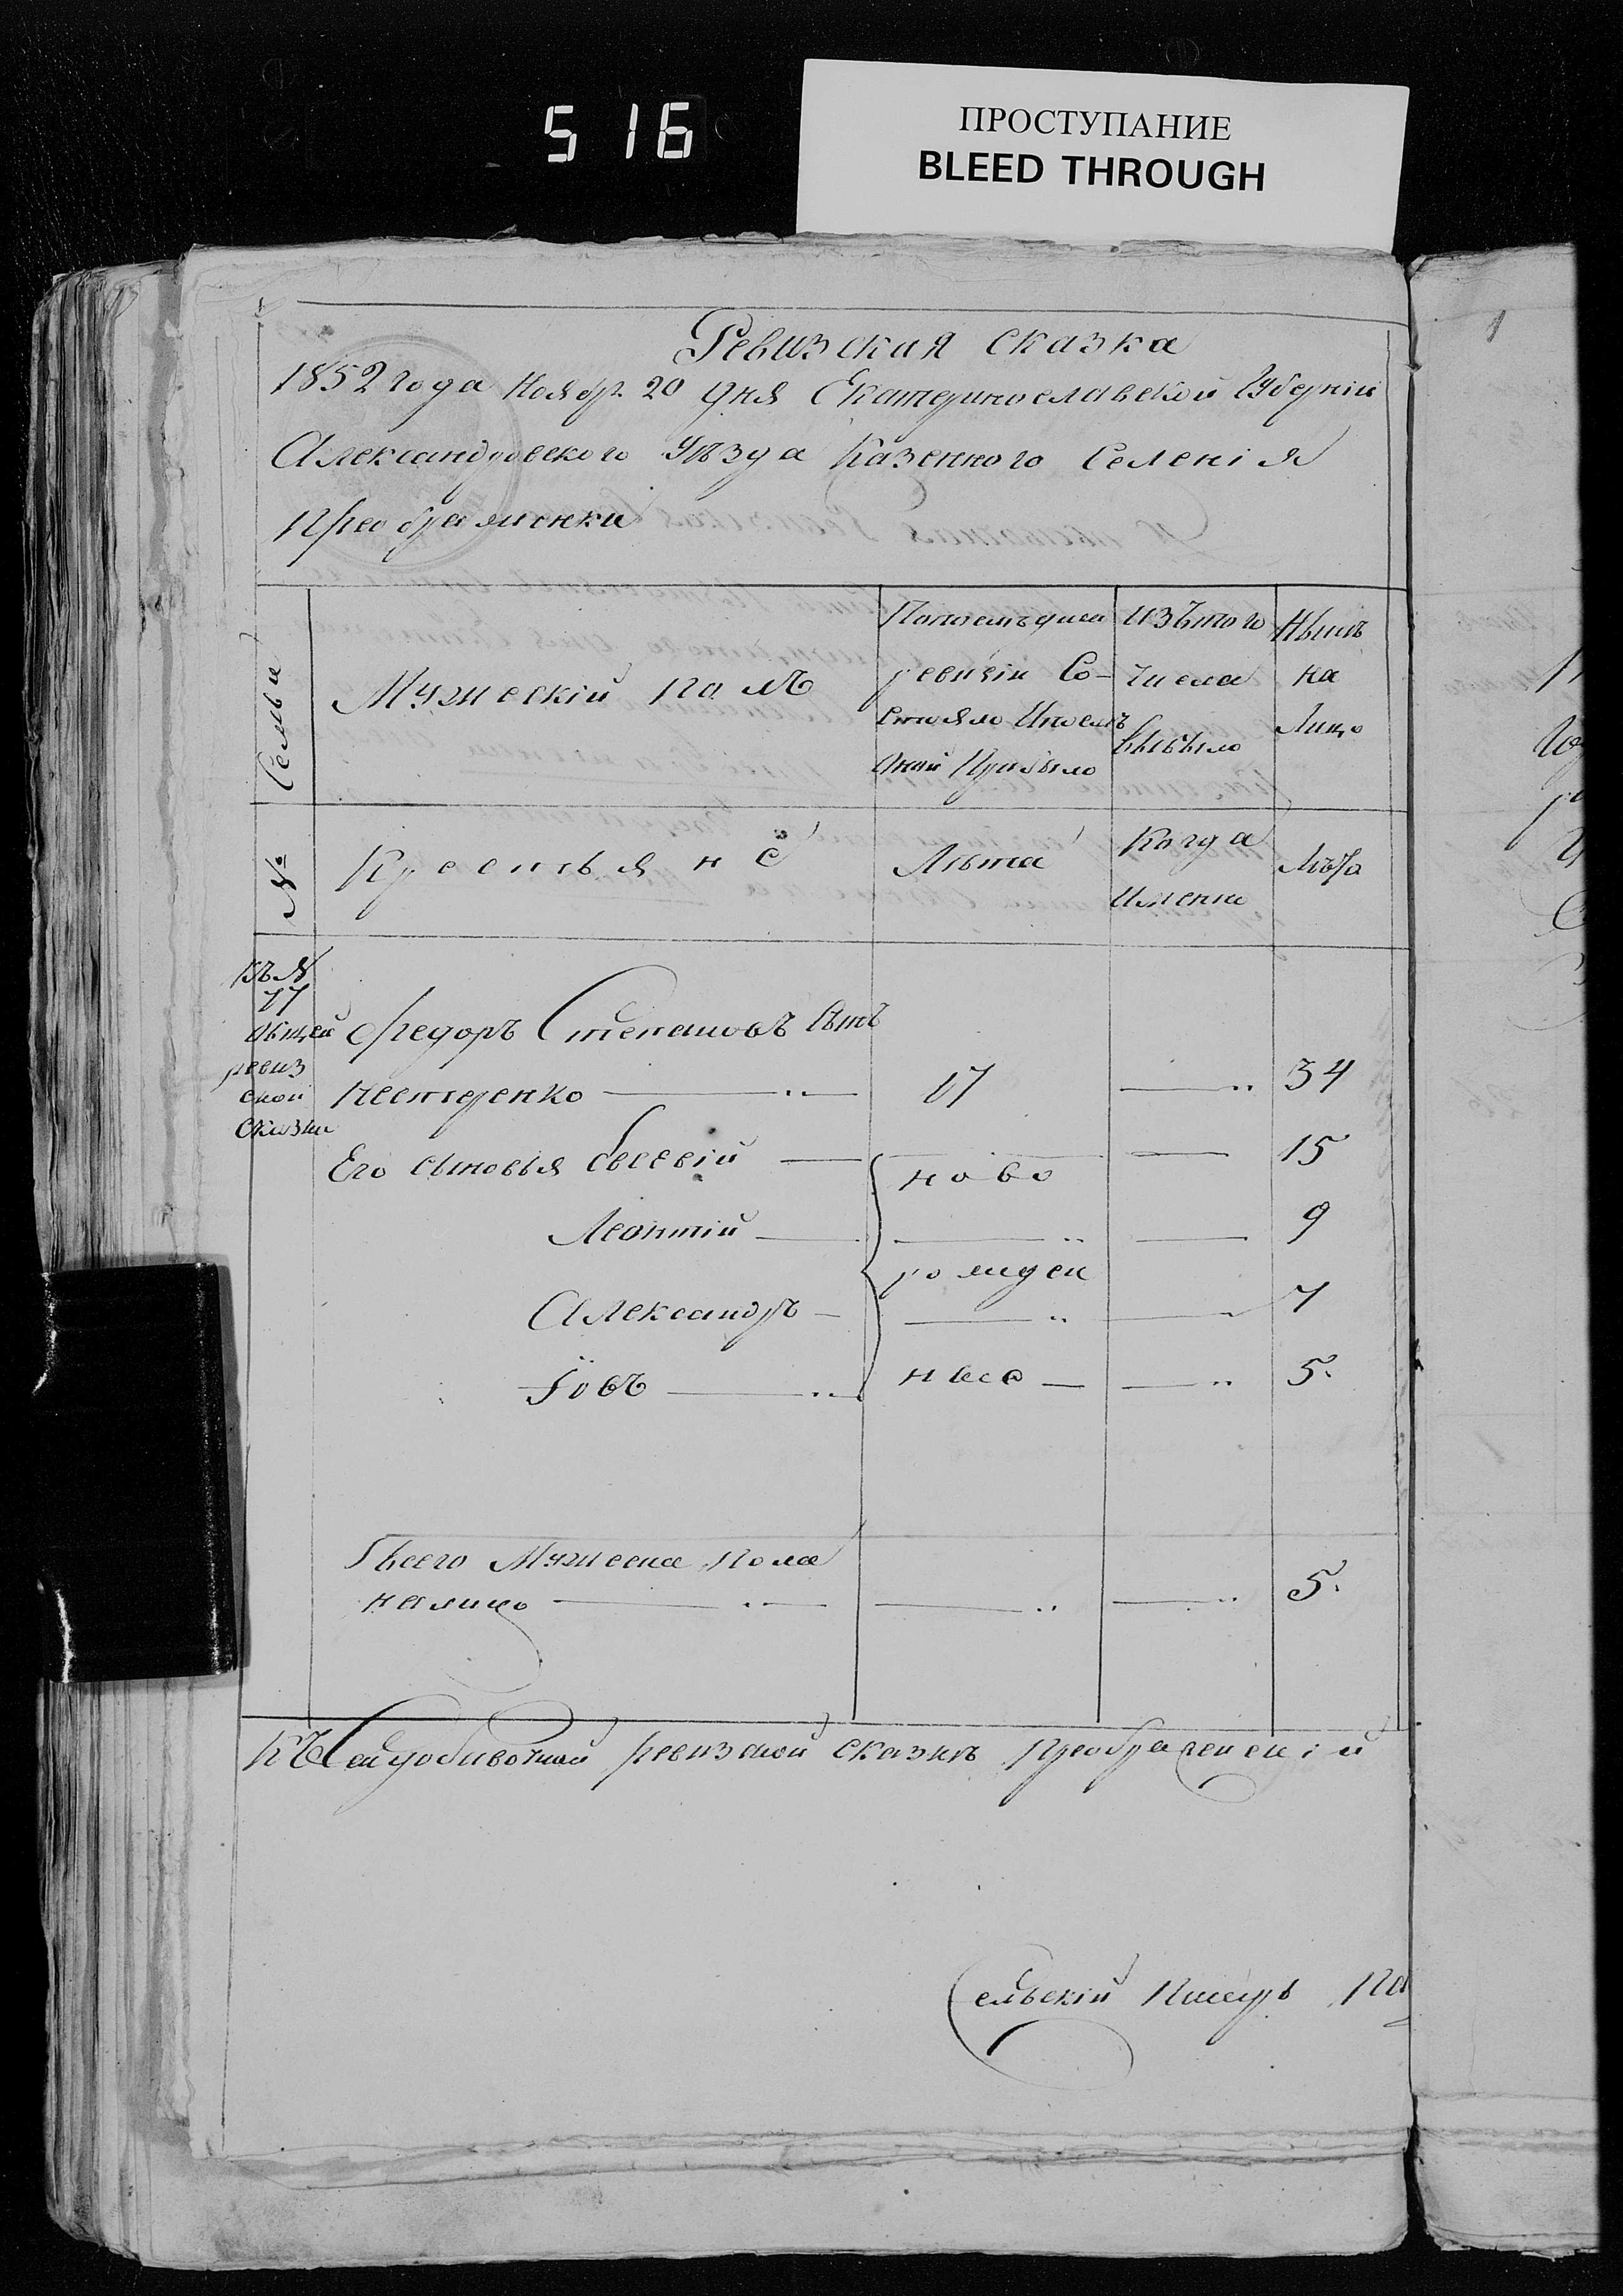 516
ПРОСТУПАНИЕ
BLEED THROUGH
Ревизская сказка
1852 года Ноябр. 20 дня Екатеринославской Губерніи
Александровского Уѣзда Казенного Селенія
Преображенки
Семьи
Мужескій полъ
По послѣдней ревизіи Состояло и послѣ оной Прибыло
Изъ того числа выбыло
Нынѣ на Лицо
№
Крестьяне
Лѣта
Когда именно
Лѣта
Къ № 77 общей ревизской сказки
Федоръ Степановъ Сынъ
Нестеренко 17 34
Его сыновья Евсевій ново 15
Леонтій 9
рожден
Александръ 7
Іовъ ные 5.
Всего Мужеска Пола
налицо 5.
ревизской сказкѣ
Сельскій Писарь Па
1